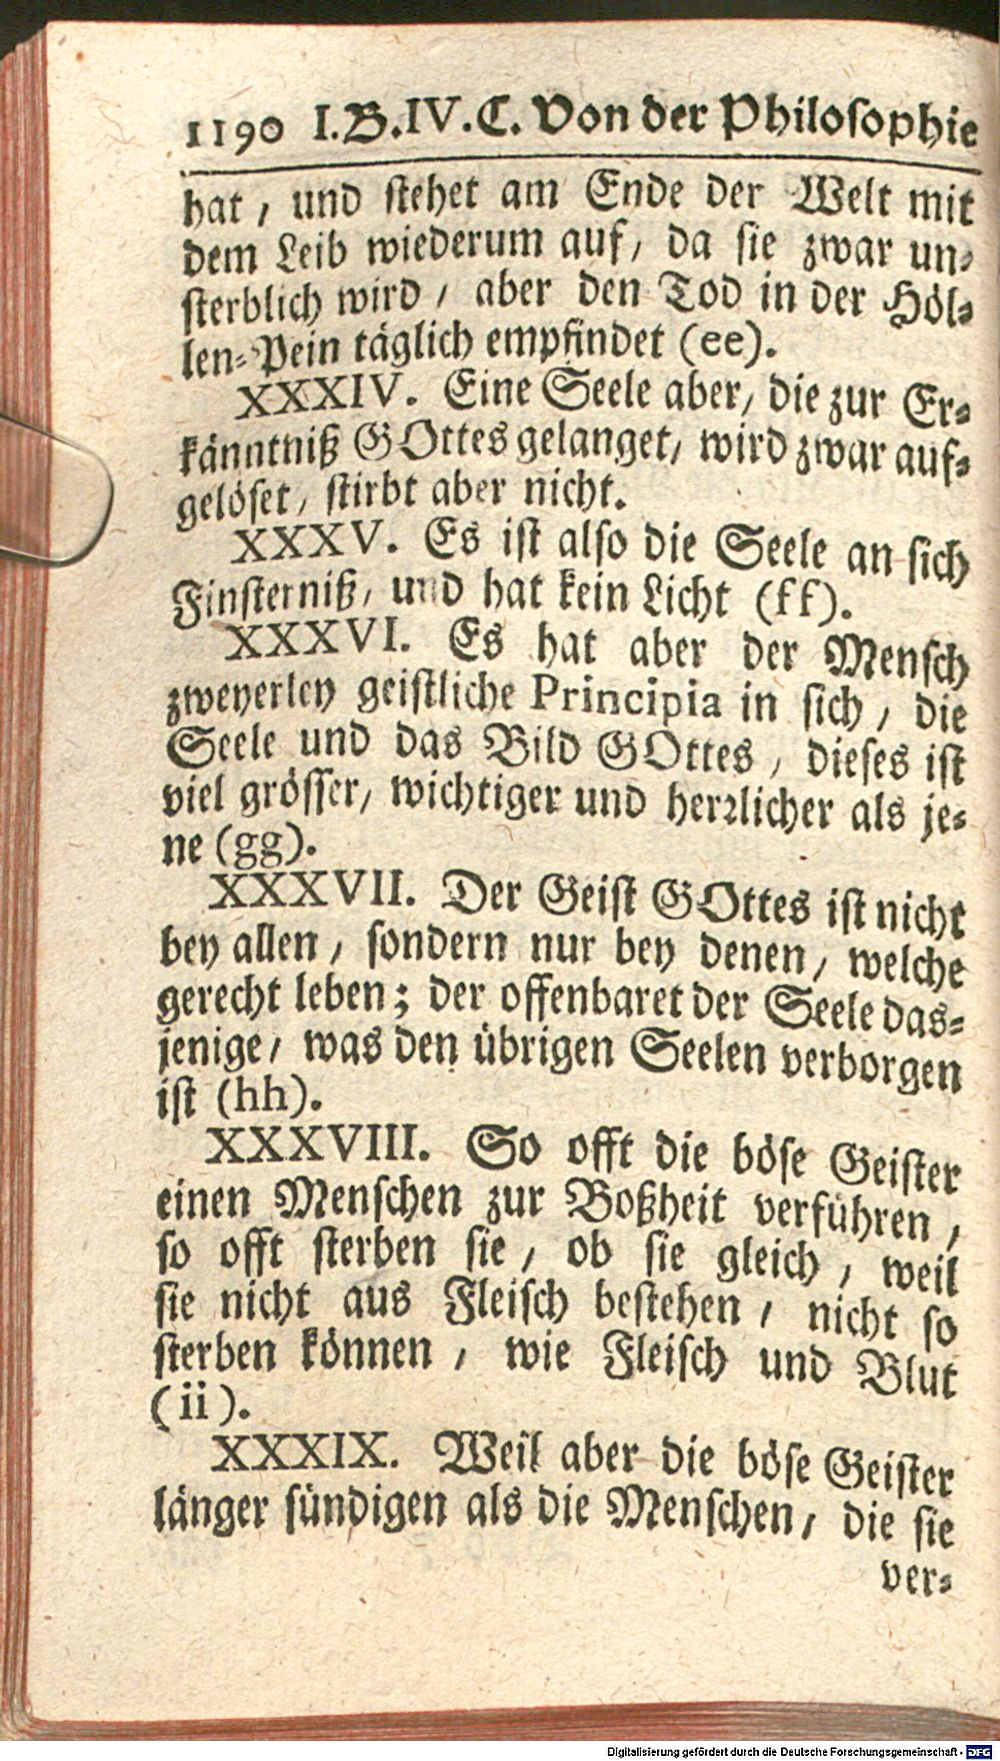 1190 I.B.IV.C. Von der Philosophie
hat, und stehet am Ende der Welt mit
dem Leib wiederum auf, da sie zwar un-
sterblich wird, aber den Tod in der Höl-
len-Pein täglich empfindet (ee).
XXXIV. Eine Seele aber, die zur Er-
känntniß GOttes gelanget, wird zwar auf-
gelöset, stirbt aber nicht.
XXXV. Es ist also die Seele an sich
Finsterniß, und hat kein Licht (ff).
XXXVI. Es hat aber der Mensch
zweyerley geistliche Principia in sich, die
Seele und das Bild GOttes, dieses ist
viel grösser, wichtiger und herrlicher als je-
ne (gg).
XXXVII. Der Geist GOttes ist nicht
bey allen, sondern nur bey denen, welche
gerecht leben; der offenbaret der Seele das-
jenige, was den übrigen Seelen verborgen
ist (hh).
XXXVIII. So offt die böse Geister
einen Menschen zur Boßheit verführen,
so offt sterben sie, ob sie gleich, weil
sie nicht aus Fleisch bestehen, nicht so
sterben können, wie Fleisch und Blut
(ii).
XXXIX. Weil aber die böse Geister
länger sündigen als die Menschen, die sie
ver-
Digitalisierung gefördert durch die Deutsche Forschungsgemeinschaft - DFG